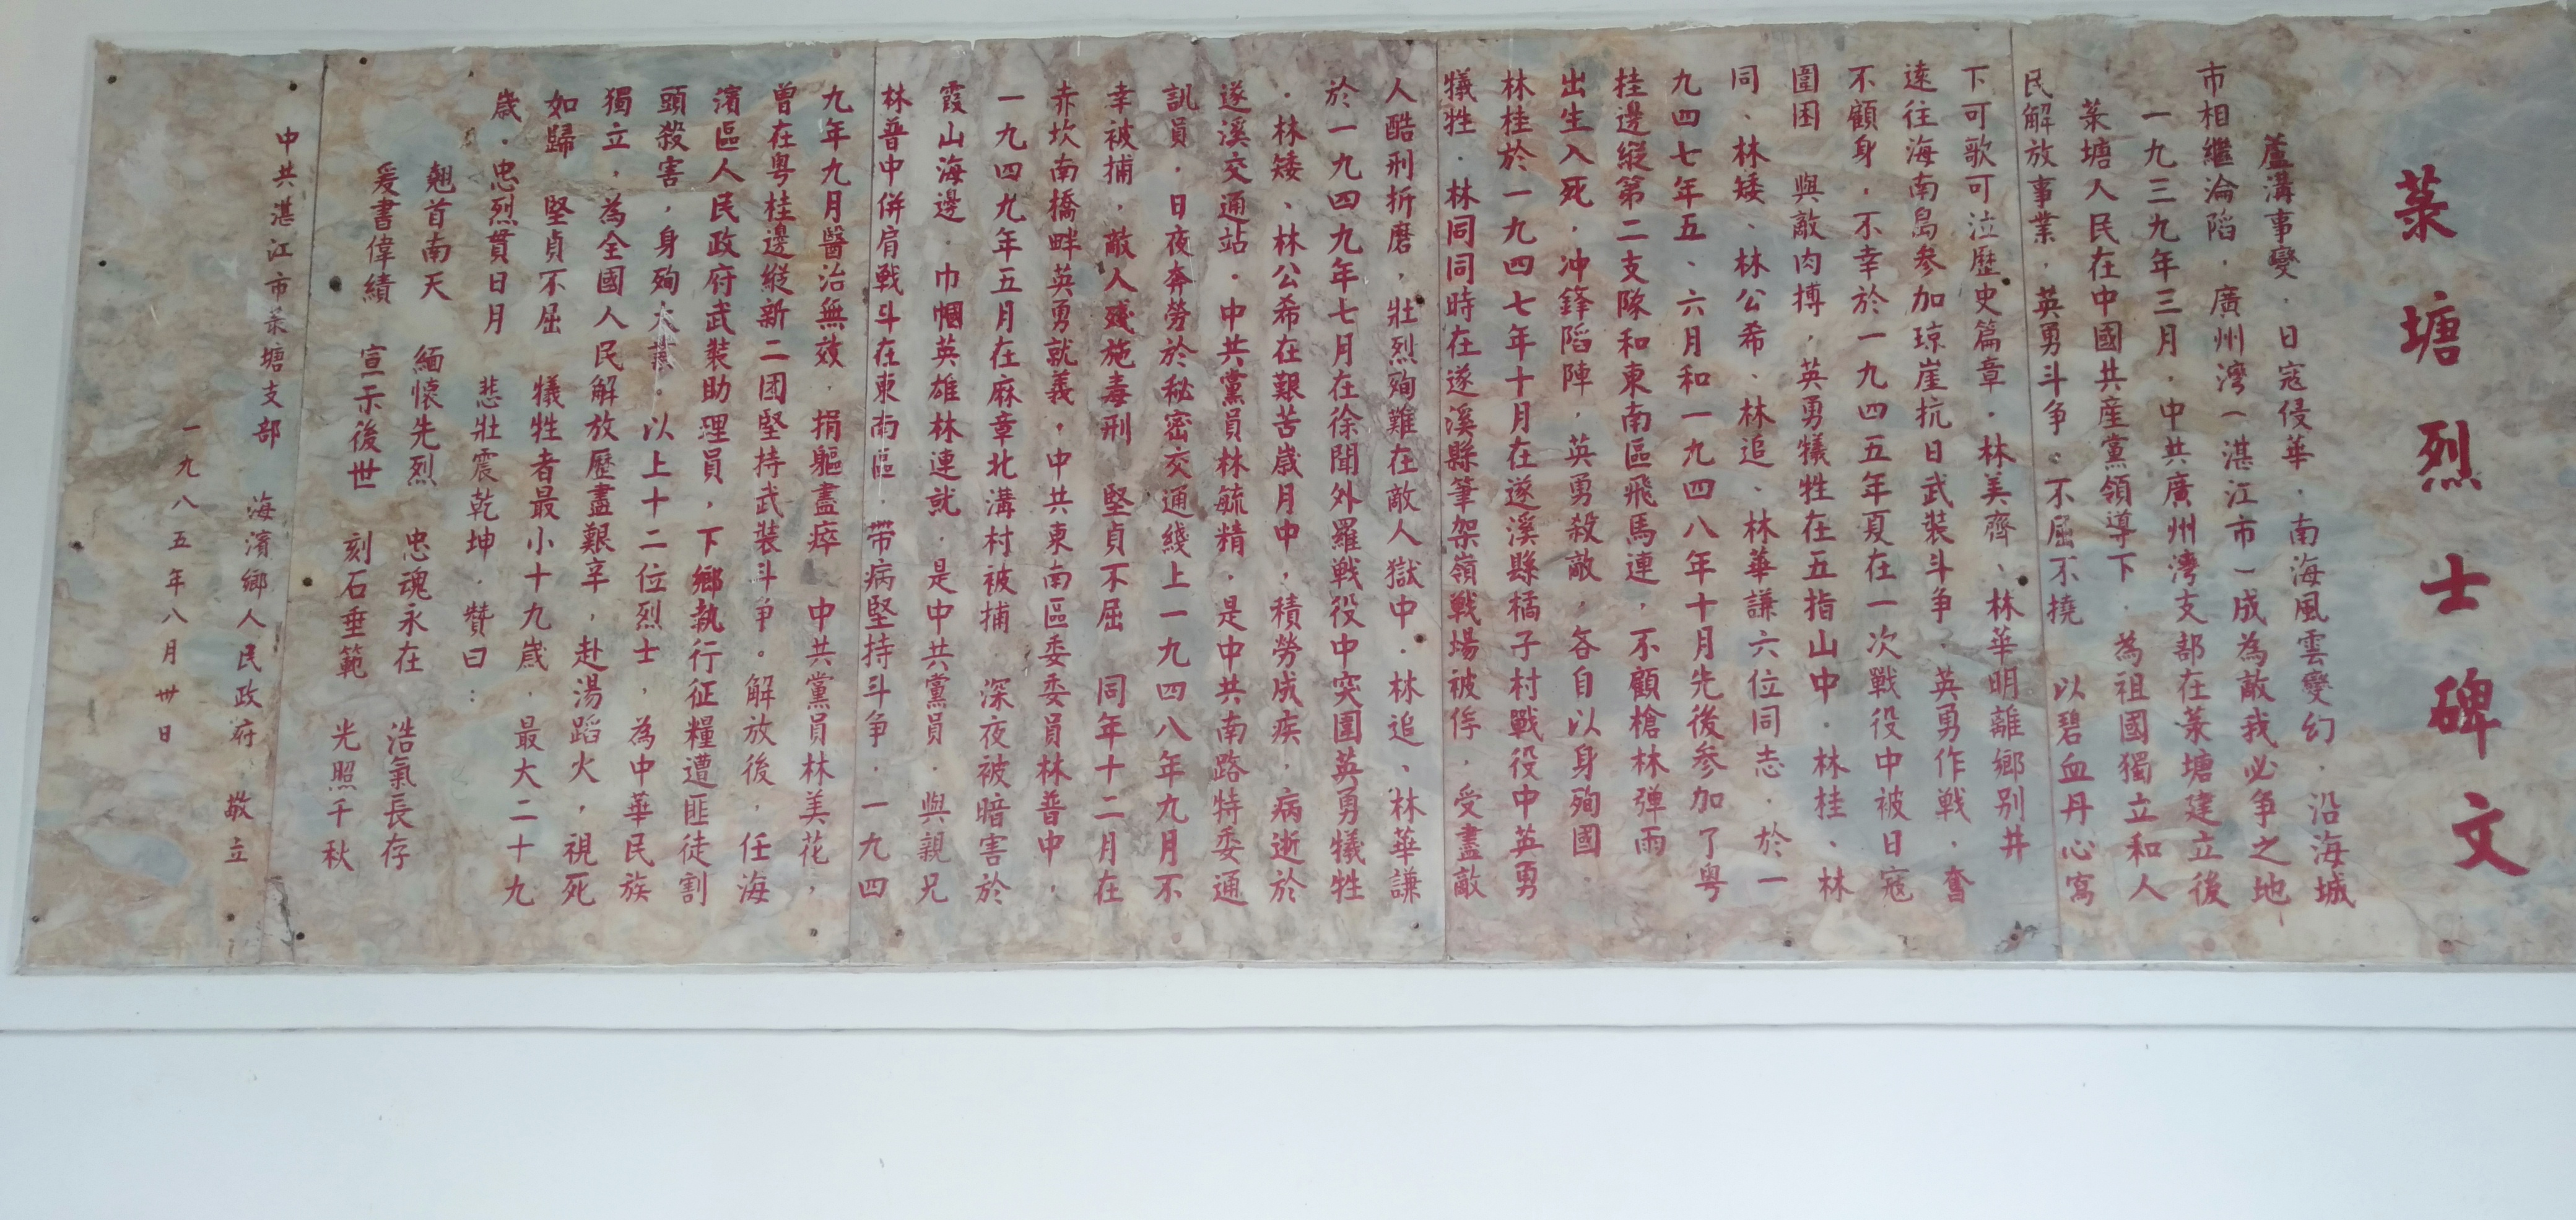 菉塘烈士碑文
蘆溝事變，日寇侵華，南海風雲變幻，沿海城
市相繼淪陷，廣州灣（湛江市）成為敵我必爭之地
一九三九年三月，中共廣州灣支部在菉塘建立後
菉塘人民在中國共産黨領導下，為祖國獨立和人
民解放事業，英勇斗争。不屈不撓 以碧血丹心寫
下可歌可泣歷史篇章，林美齊、林華明離鄉别井
遠往海南島参加琼崖抗日武装斗争，英勇作戰，奮
不顧身，不幸於一九四五年夏在一次戰役中被日寇
圍困 與敵肉搏，英勇犠牲在五指山中．林桂、林
同、林矮、林公希、林追、林華謙六位同志．於一
九四七年五、六月和一九四八年十月先後参加了粤
桂邊縱第二支隊和東南區飛馬連，不顧槍林弹雨
出生入死，冲鋒陷陣，英勇殺敵，各自以身殉國．
林桂於一九四七年十月在遂溪縣橘子村戰役中英勇
犠牲．林同同時在遂溪縣筆架嶺戰場被俘，受盡敵
人酷刑折磨，壯烈殉難在敵人獄中．林追、林華謙
於一九四九年七月在徐聞外羅戰役中突圍英勇犠牲
．林矮、林公希在艱苦歲月中，積勞成疾，病逝於
遂溪交通站．中共黨員林毓精，是中共南路特委通
訊員，日夜奔勞於秘密交通綫上一九四八年九月不
幸被捕，敵人殘施毒刑 堅貞不屈 同年十二月在
赤坎南橋畔英勇就義，中共東南區委委員林普中，
一九四九年五月在麻章北溝村被捕 深夜被暗害於
霞山海邊．巾幗英雄林連就．是中共黨員．與親兄
林普中併肩戰斗在東南區．带病堅持斗争．一九四
九年九月醫治無效，捐軀盡瘁 中共黨員林美花，
曾在粤桂邊縱新二团堅持武装斗争。解放後，任海
濱區人民政府武装助理員，下鄉執行征糧遭匪徒割
頭殺害，身殉大義。以上十二位烈士，為中華民族
獨立，為全國人民解放歷盡艱辛，赴湯蹈火，視死
如歸 堅貞不屈 犠牲者最小十九歲．最大二十九
歲．忠烈貫日月 悲壯震乾坤．贊曰：
翹首南天 緬懷先烈 忠魂永在 浩氣長存
爰書偉績 宣示後世 刻石垂範 光照千秋
中共湛江市菉塘支部 海濱鄉人民政府 敬立
一九八五年八月卅日